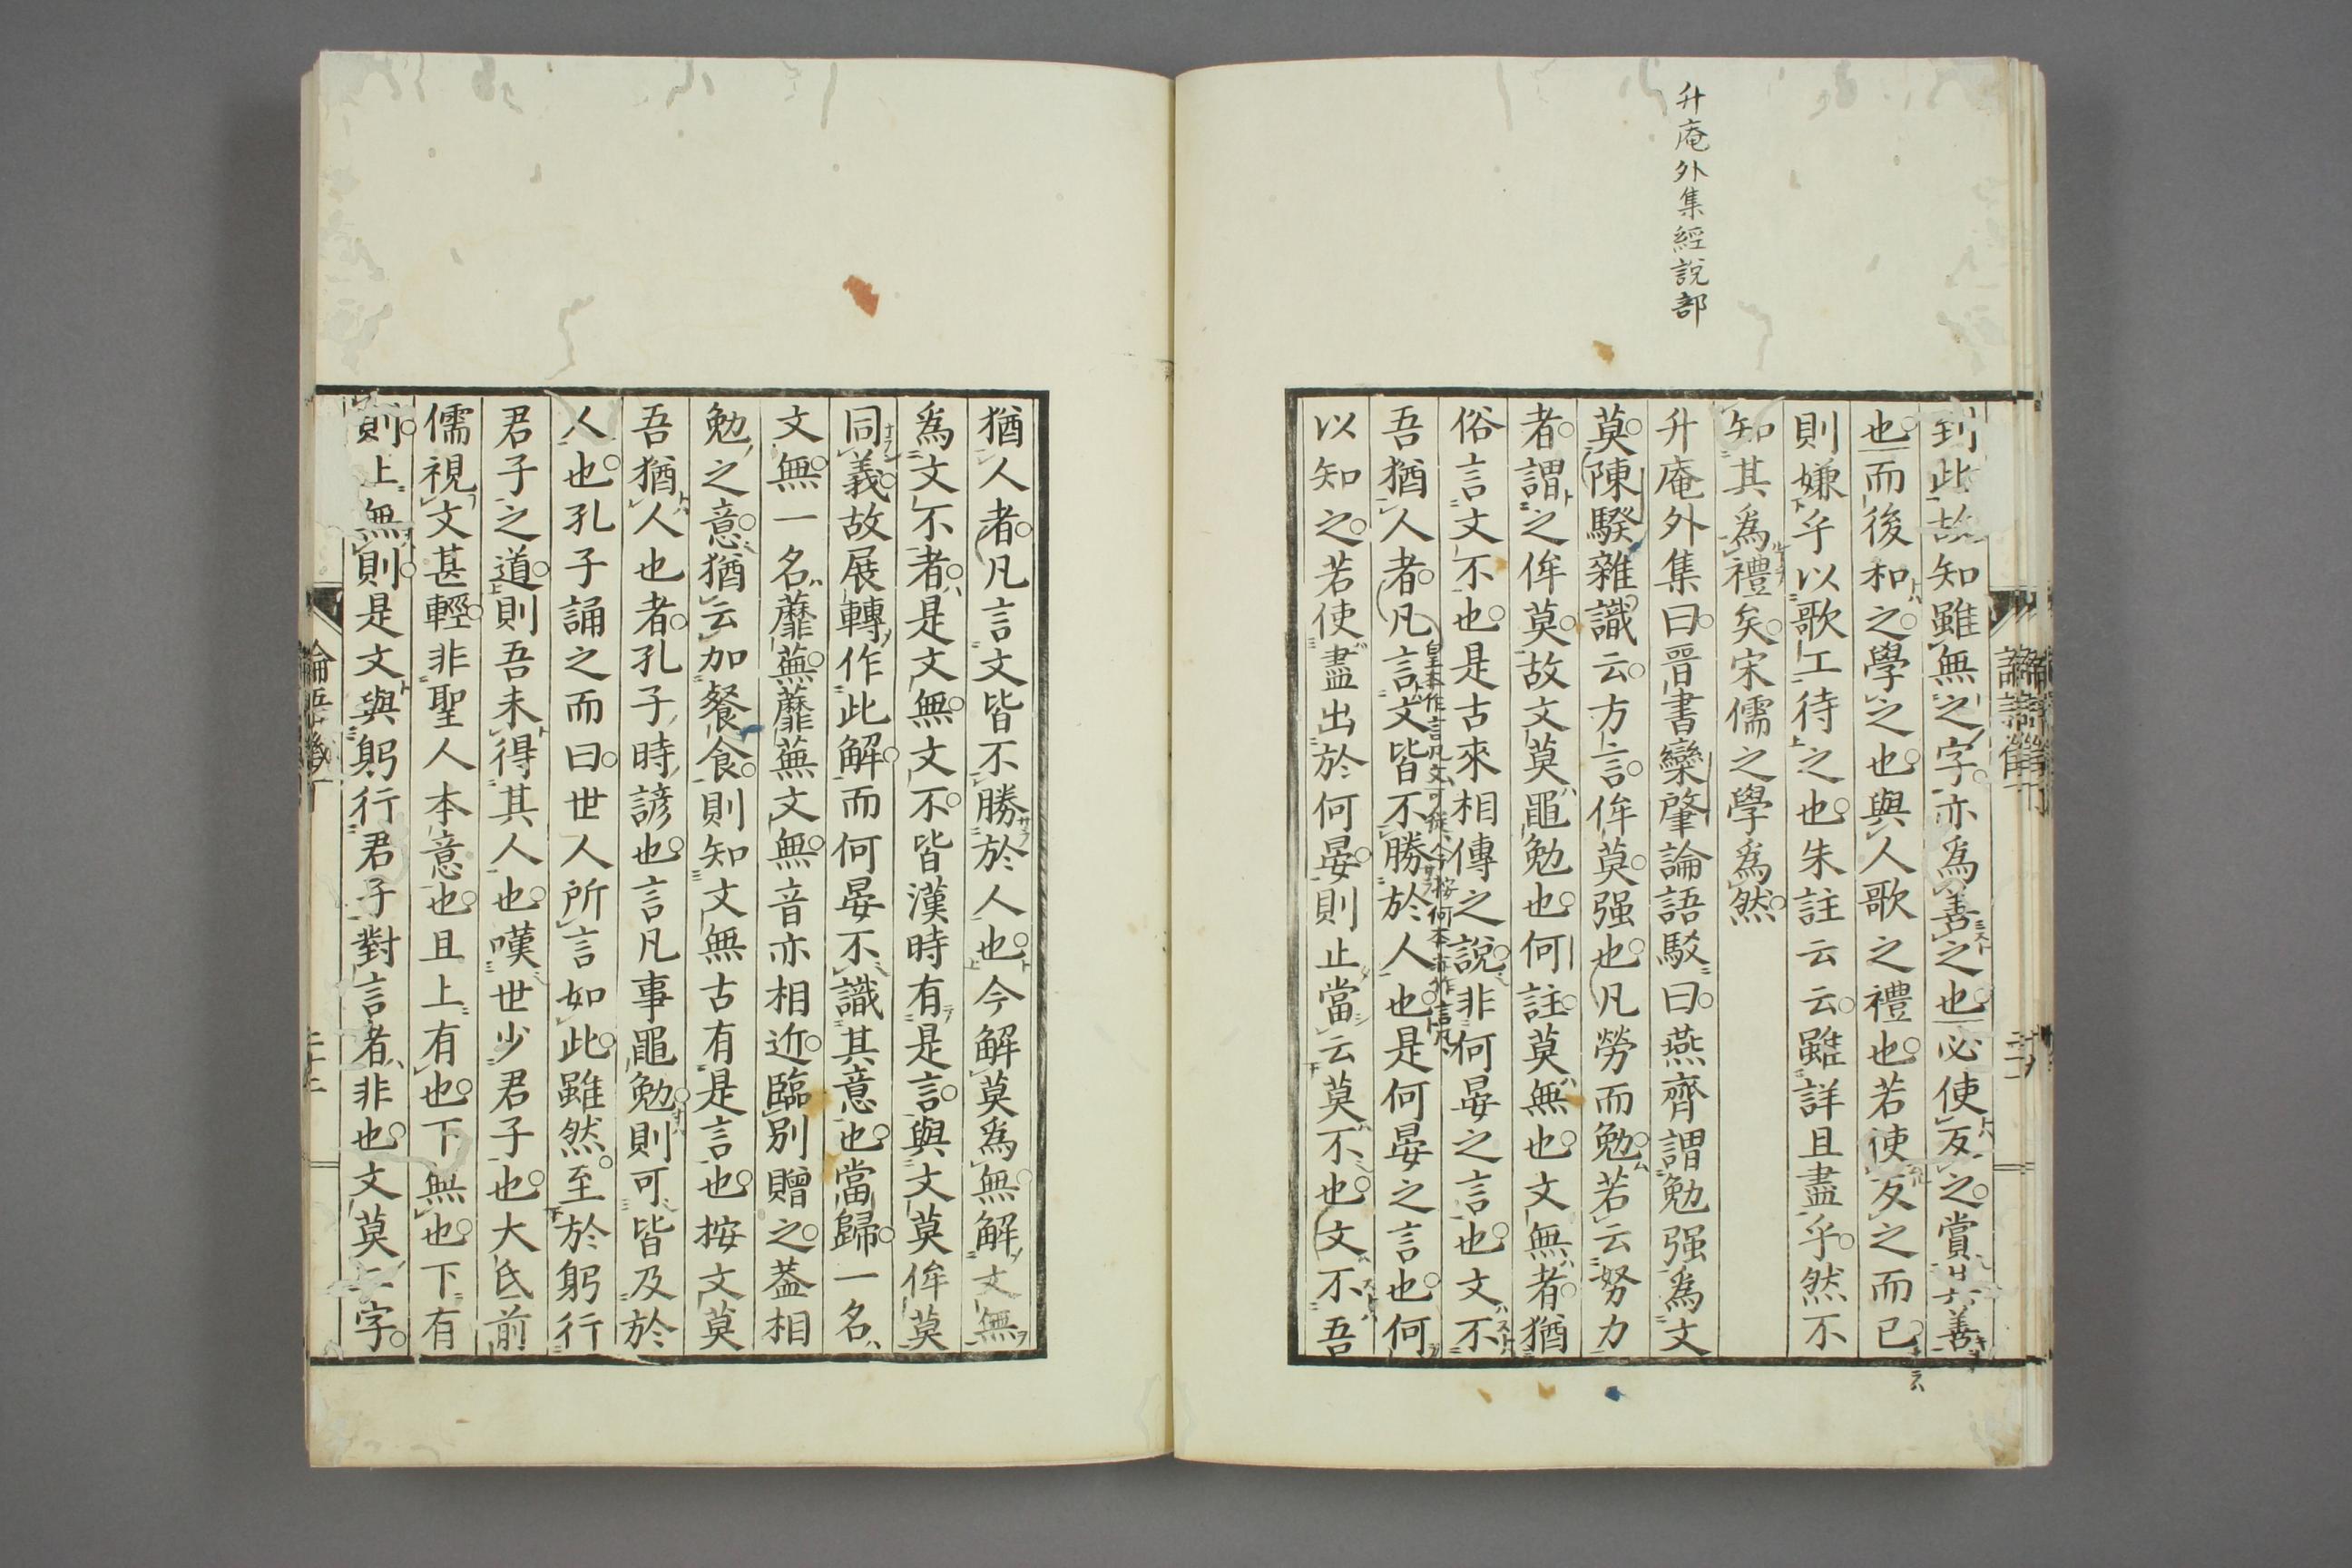 升庵外集經說部
到此故知雖無之字亦為善之也必使反之賞其善
也而後和之學之也與人歌之禮也若使反之而已
則嫌乎以歌工待之也朱註云云雖詳且盡乎然不
知其為禮矣宋儒之學為然
升庵外集曰晉書欒肇論語駁曰燕齊謂勉强為文
莫陳騤雜識云方言侔莫强也凡勞而勉若云努力
者謂之侔莫故文莫黽勉也何註莫無也文無者猶
俗言文不也是古來相傳之說非何晏之言也文不
吾猶人者凡言文皆不勝於人也是何晏之言也何
皇本作言凡文可從今按何本亦作言凡
以知之若使盡出於何晏則止當云莫不也文不吾
猶人者凡言文皆不勝於人也今解莫為無解文無
為文不者是文無文不皆漢時有是言與文莫侔莫
同義故展轉作此解而何晏不識其意也當歸一名
文無一名蘼蕪蘼蕪文無音亦相近臨別贈之蓋相
勉之意猶云加餐食則知文無古有是言也按文莫
吾猶人也者孔子時諺也言凡事黽勉則可皆及於
人也孔子誦之而曰世人所言如此雖然至於躬行
君子之道則吾未得其人也嘆世少君子也大氐前
儒視文甚輕非聖人本意也且上有也下無也下有
則上無則是文與躬行君子對言者非也文莫二字
論語徵丁
二十二